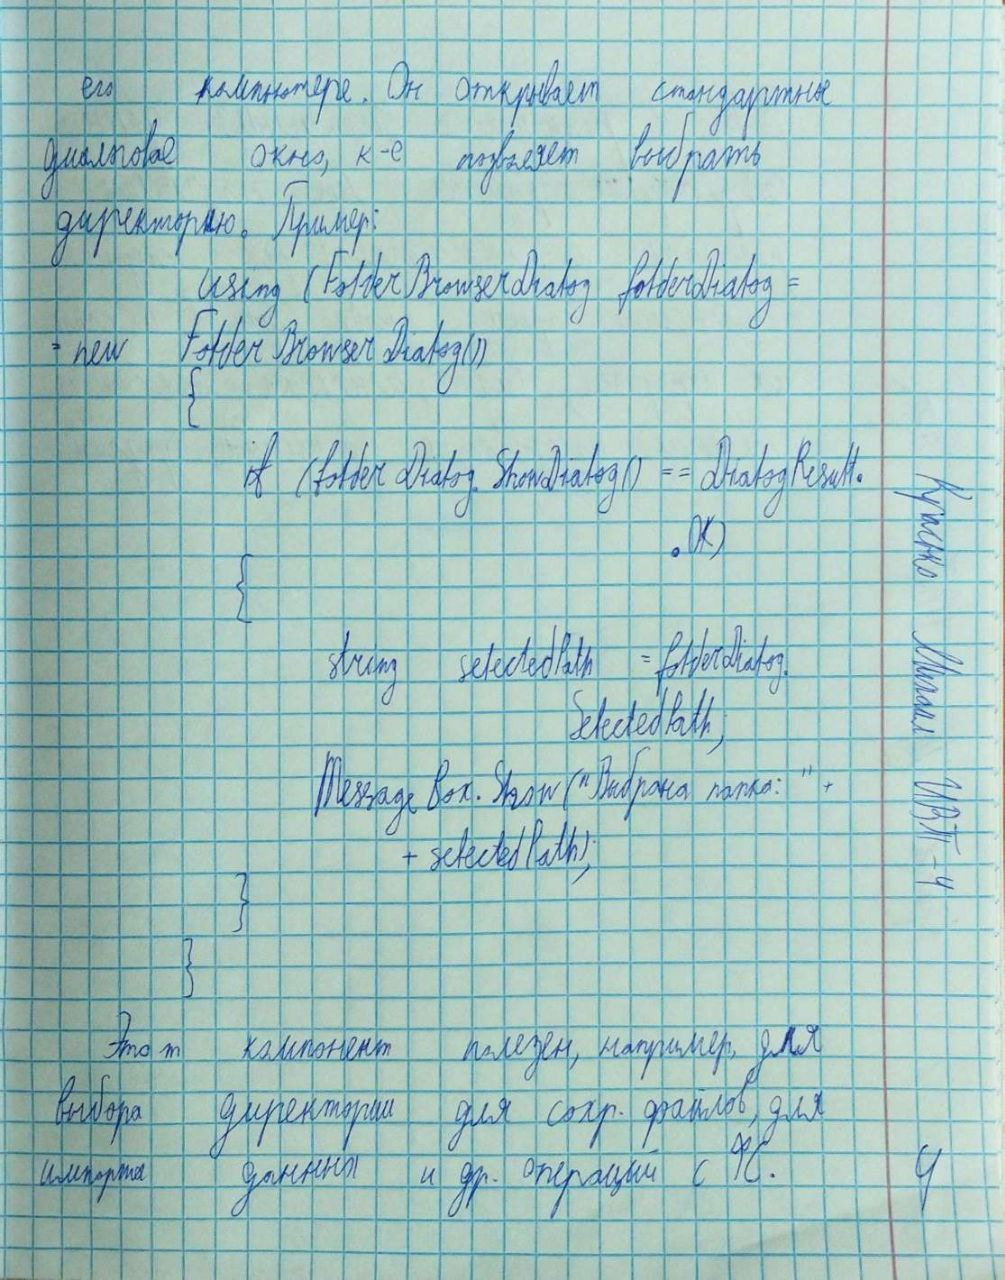 его компьютере. Он открывает стандартные
диалоговое окно, к-е позволяет выбрать
директорию. Пример:
using (FolderBrowserDialog folderDialog =
= new FolderBrowserDialog())
{
if (folderDialog.ShowDialog() == DialogResult.
.OK)
{
string selectedPath = folderDialog.
SelectedPath;
MessageBox.Show("Выбрана папка: " +
+ selectedPath);
}
}
Этот компонент полезен, например, для
выбора директории для сохр. файлов, для
импорта данны и др. операций с ФС.
4
Милан ИВТ-4